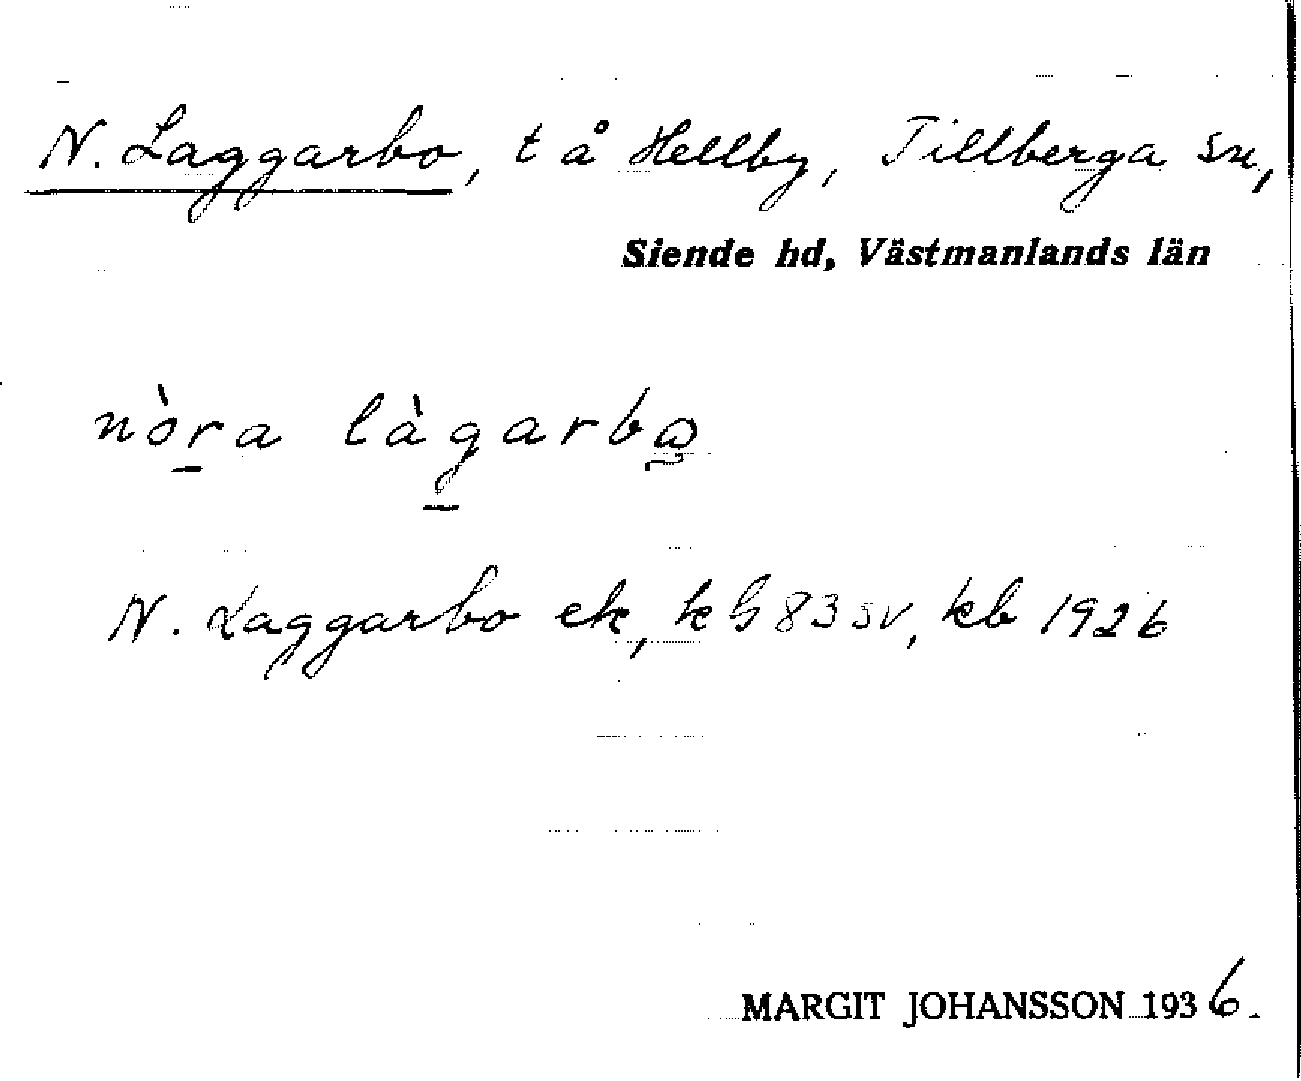 N. Laggarbo, t å Hellby, Tillberga sn,
Siende hd, Västmanlands län
nòra làgarbω
N. Laggarbo ek, k G 83 sv, kb 1926
MARGIT JOHANSSON 1936.